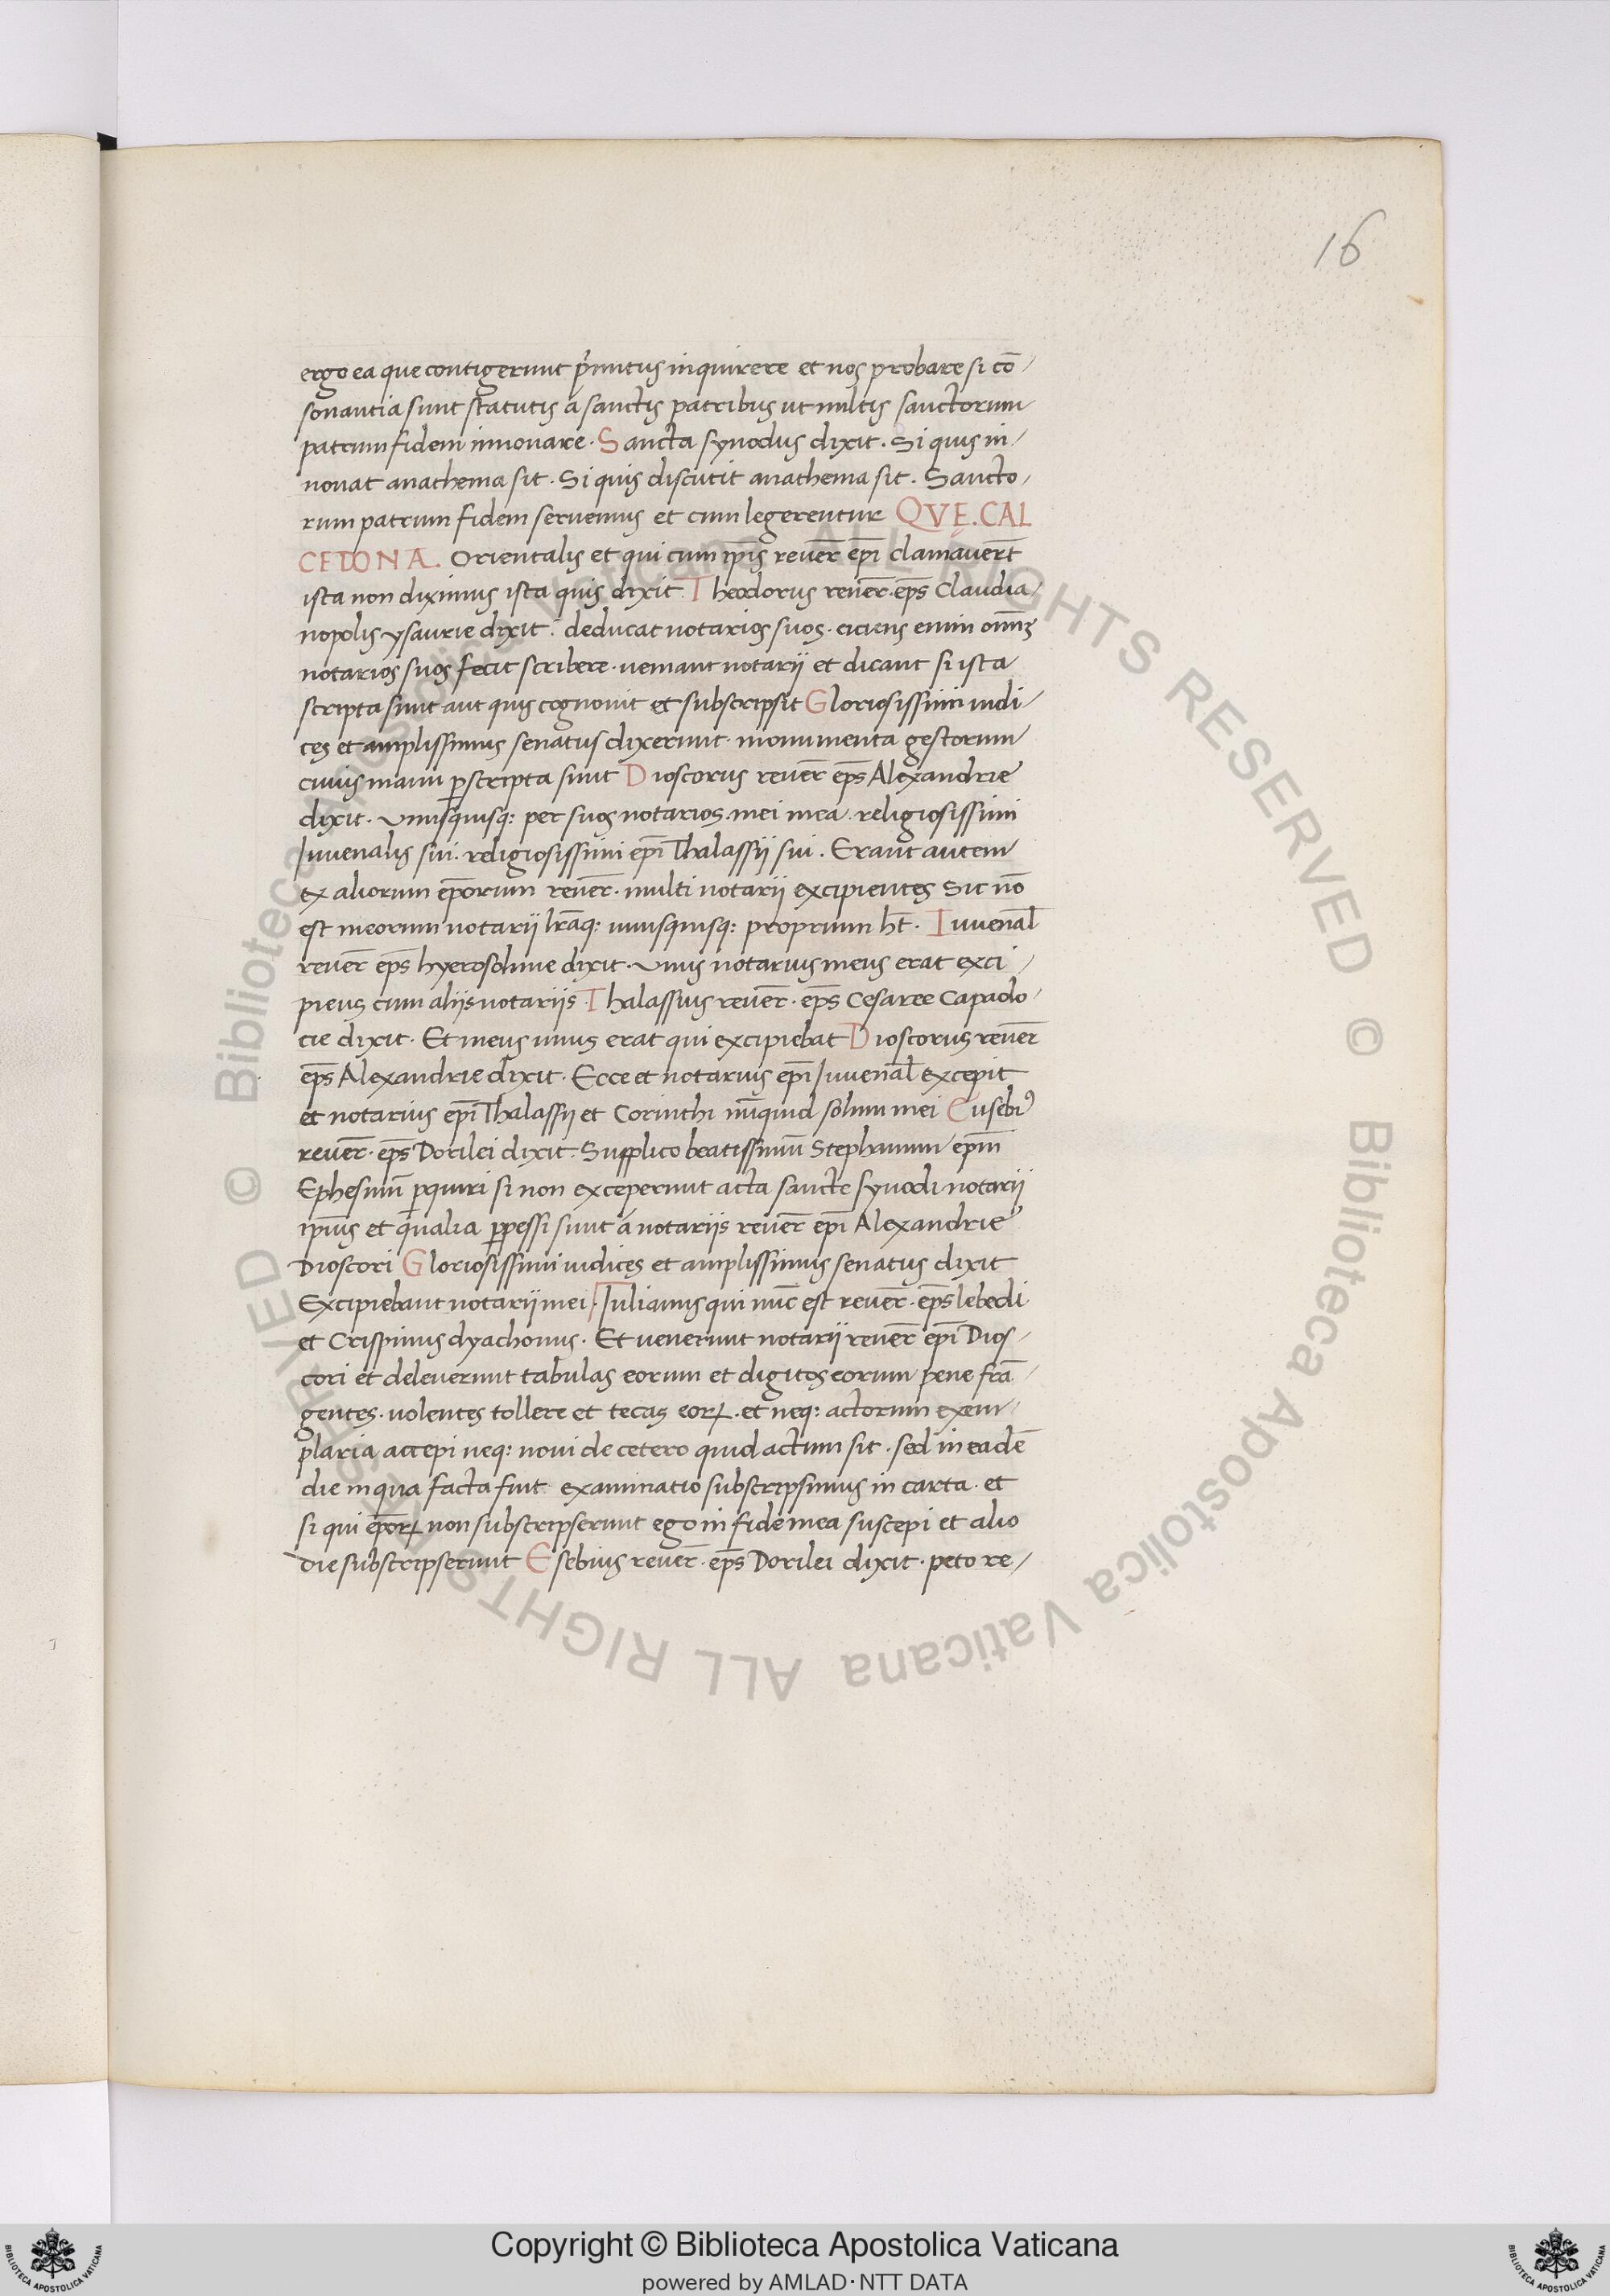 16
ergo ea que contigerunt p̄mitus inquirere et nos probare si cō/
sonantia sunt statutis a sanctis patribus ut mltis sanctorum
patrum fidem innouare. Sancta synodus dixit. Si quis in/
nouat anathema sit. Si quis discutit anathema sit. Sancto/
rum patrum fidem seruemus et cum legerentur QVE. CAL
CEDONA. Orientalis et qui cum ip̄is reuer̄ ep̄i clamauer̄t
ista non diximus ista quis dixit Theodorus reuer̄. ep̄s Claudia/
nopolis ysaurie dixit. deducat notarios suos. eiciens enim om̄s
notarios suos fecit scribere. ueniant notarii et dicant si ista
scripta sunt aut quis cognouit et subscripsit Gloriosissimi iudi/
ces et amplissimus senatus dixerunt. monumenta gestorum
cuius manu ꝑscripta sunt Dioscorus reuer̄ ep̄s Alexandrie
dixit. Vnusquisq: per suos notarios. mei mea. religiosissimi
Iuuenalis sui. religiosissimi ep̄i Thalassii sui. Erant autem
ex aliorum ep̄orum reuer̄. multi notarii excipientes Sic nō
est meorum notarii lr̄aq: unusquisq: proprium h̄t. Iuuenal̄
reuer̄ ep̄s hyerosolime dixit. Vnus notarius meus erat exci/
piens cum aliis notariis Thalassius reuer̄. ep̄s Cesaree Capado/
cie dixit. Et meus unus erat qui excipiebat Dioscorus reuer̄
ep̄s Alexandrie dixit. Ecce et notarius ep̄i Iuuenal̄ excepit
et notarius ep̄i Thalassii et Corinthi nūquid solum mei Eusebiꝰ
reuer̄. ep̄s Dorilei dixit. Supplico beatissimū Stephanum ep̄m
Ephesinū ꝑquiri si non exceperunt acta sancte synodi notarii
ip̄ius et qualia ꝑpessi sunt a notariis reuer̄ ep̄i Alexandrie
Dioscori Gloriosissimi iudices et amplissimus senatus dixit
Excipiebant notarii mei. Iulianus qui nūc est reuer̄. ep̄s lebedi
et Crispinus dyachonus. Et uenerunt notarii reuer̄ ep̄i Dios/
cori et deleuerunt tabulas eorum et digitos eorum pene frā/
gentes. uolentes tollere et tecas eorꝝ. et neq: actorum exem/
plaria accepi neq: noui de cetero quid actum sit. sed in eadē
die in qua facta fuit examinatio subscripsimus in carta. et
si qui ep̄orꝝ non subscripserunt ego in fide mea suscepi et alio
die subscripserunt Esebius reuer̄. ep̄s Dorilei dixit. peto re/
© Biblioteca Apostolica Vaticana ALL RIGHTS RESERVED
© Biblioteca Apostolica Vaticana ALL RIGHTS RESERVED
Copyright © Biblioteca Apostolica Vaticana
powered by AMLAD·NTT DATA
BIBLIOTECA APOSTOLICA VATICANA
BIBLIOTECA APOSTOLICA VATICANA